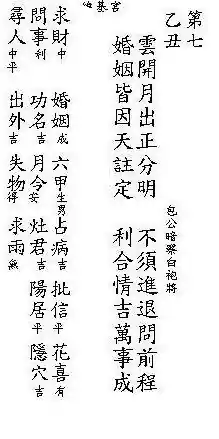 第七
乙丑
雲開月出正分明 不須進退問前程
婚姻皆因天註定 利合情吉萬事成
包公暗察白袍將
基宮
求財中 婚姻成 六甲生男 占病吉 批信平 花喜有
問事利 功名吉 月令安 灶君吉 陽居平 隱穴吉
尋人中平 出外吉 失物得 求雨無